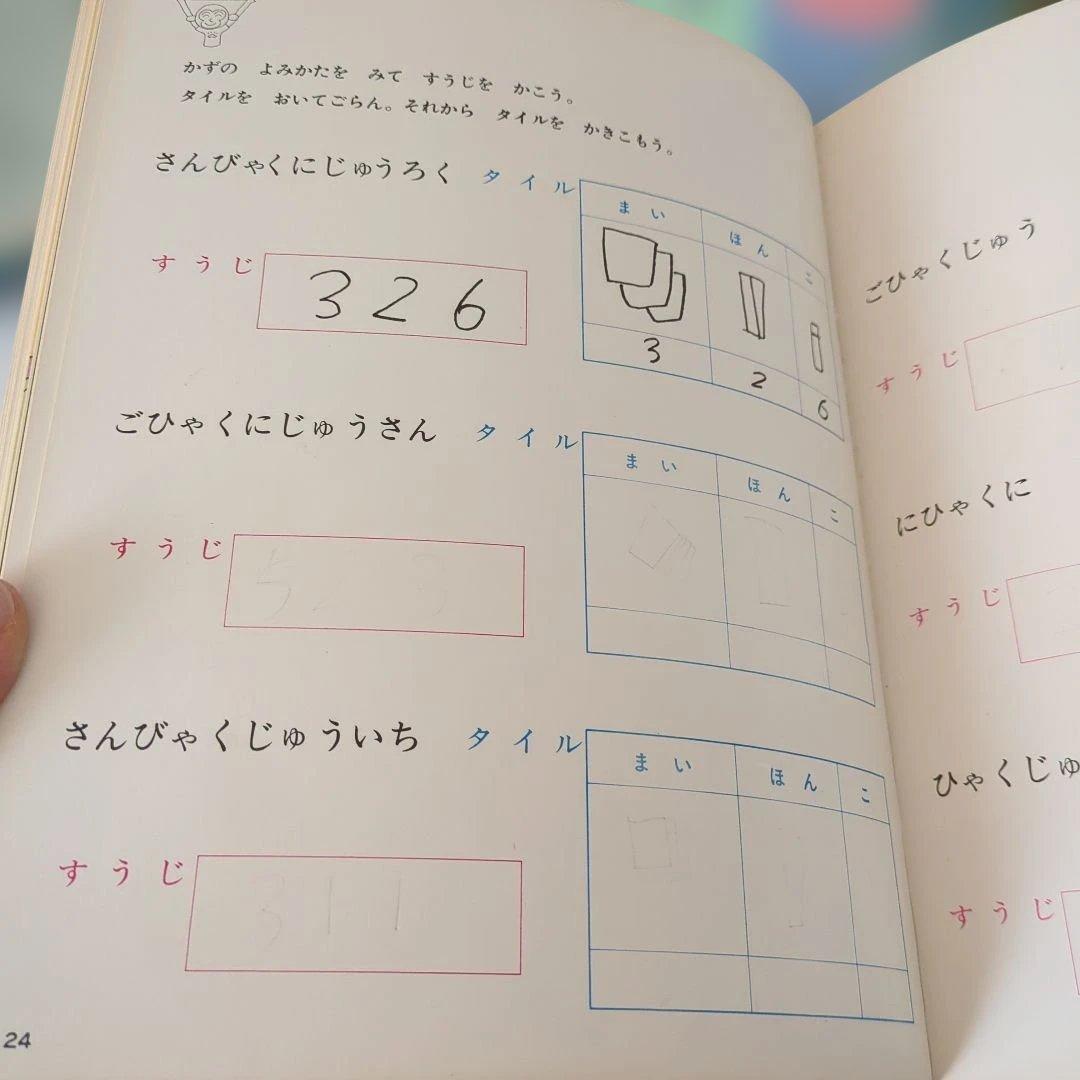 かずの よみかたを みて すうじを かこう。
タイルを おいてごらん。それから タイルを かきこもう。
さんびゃくにじゅうろく タイル
まい ほん こ
すうじ 326
3 2 6
ごひゃくにじゅうさん タイル
まい ほん こ
すうじ 5 2 3
さんびゃくじゅういち タイル
まい ほん こ
すうじ 311
24
ごひゃくじゅう
すうじ
にひゃくに
すうじ
ひゃくじゅ
すうじ